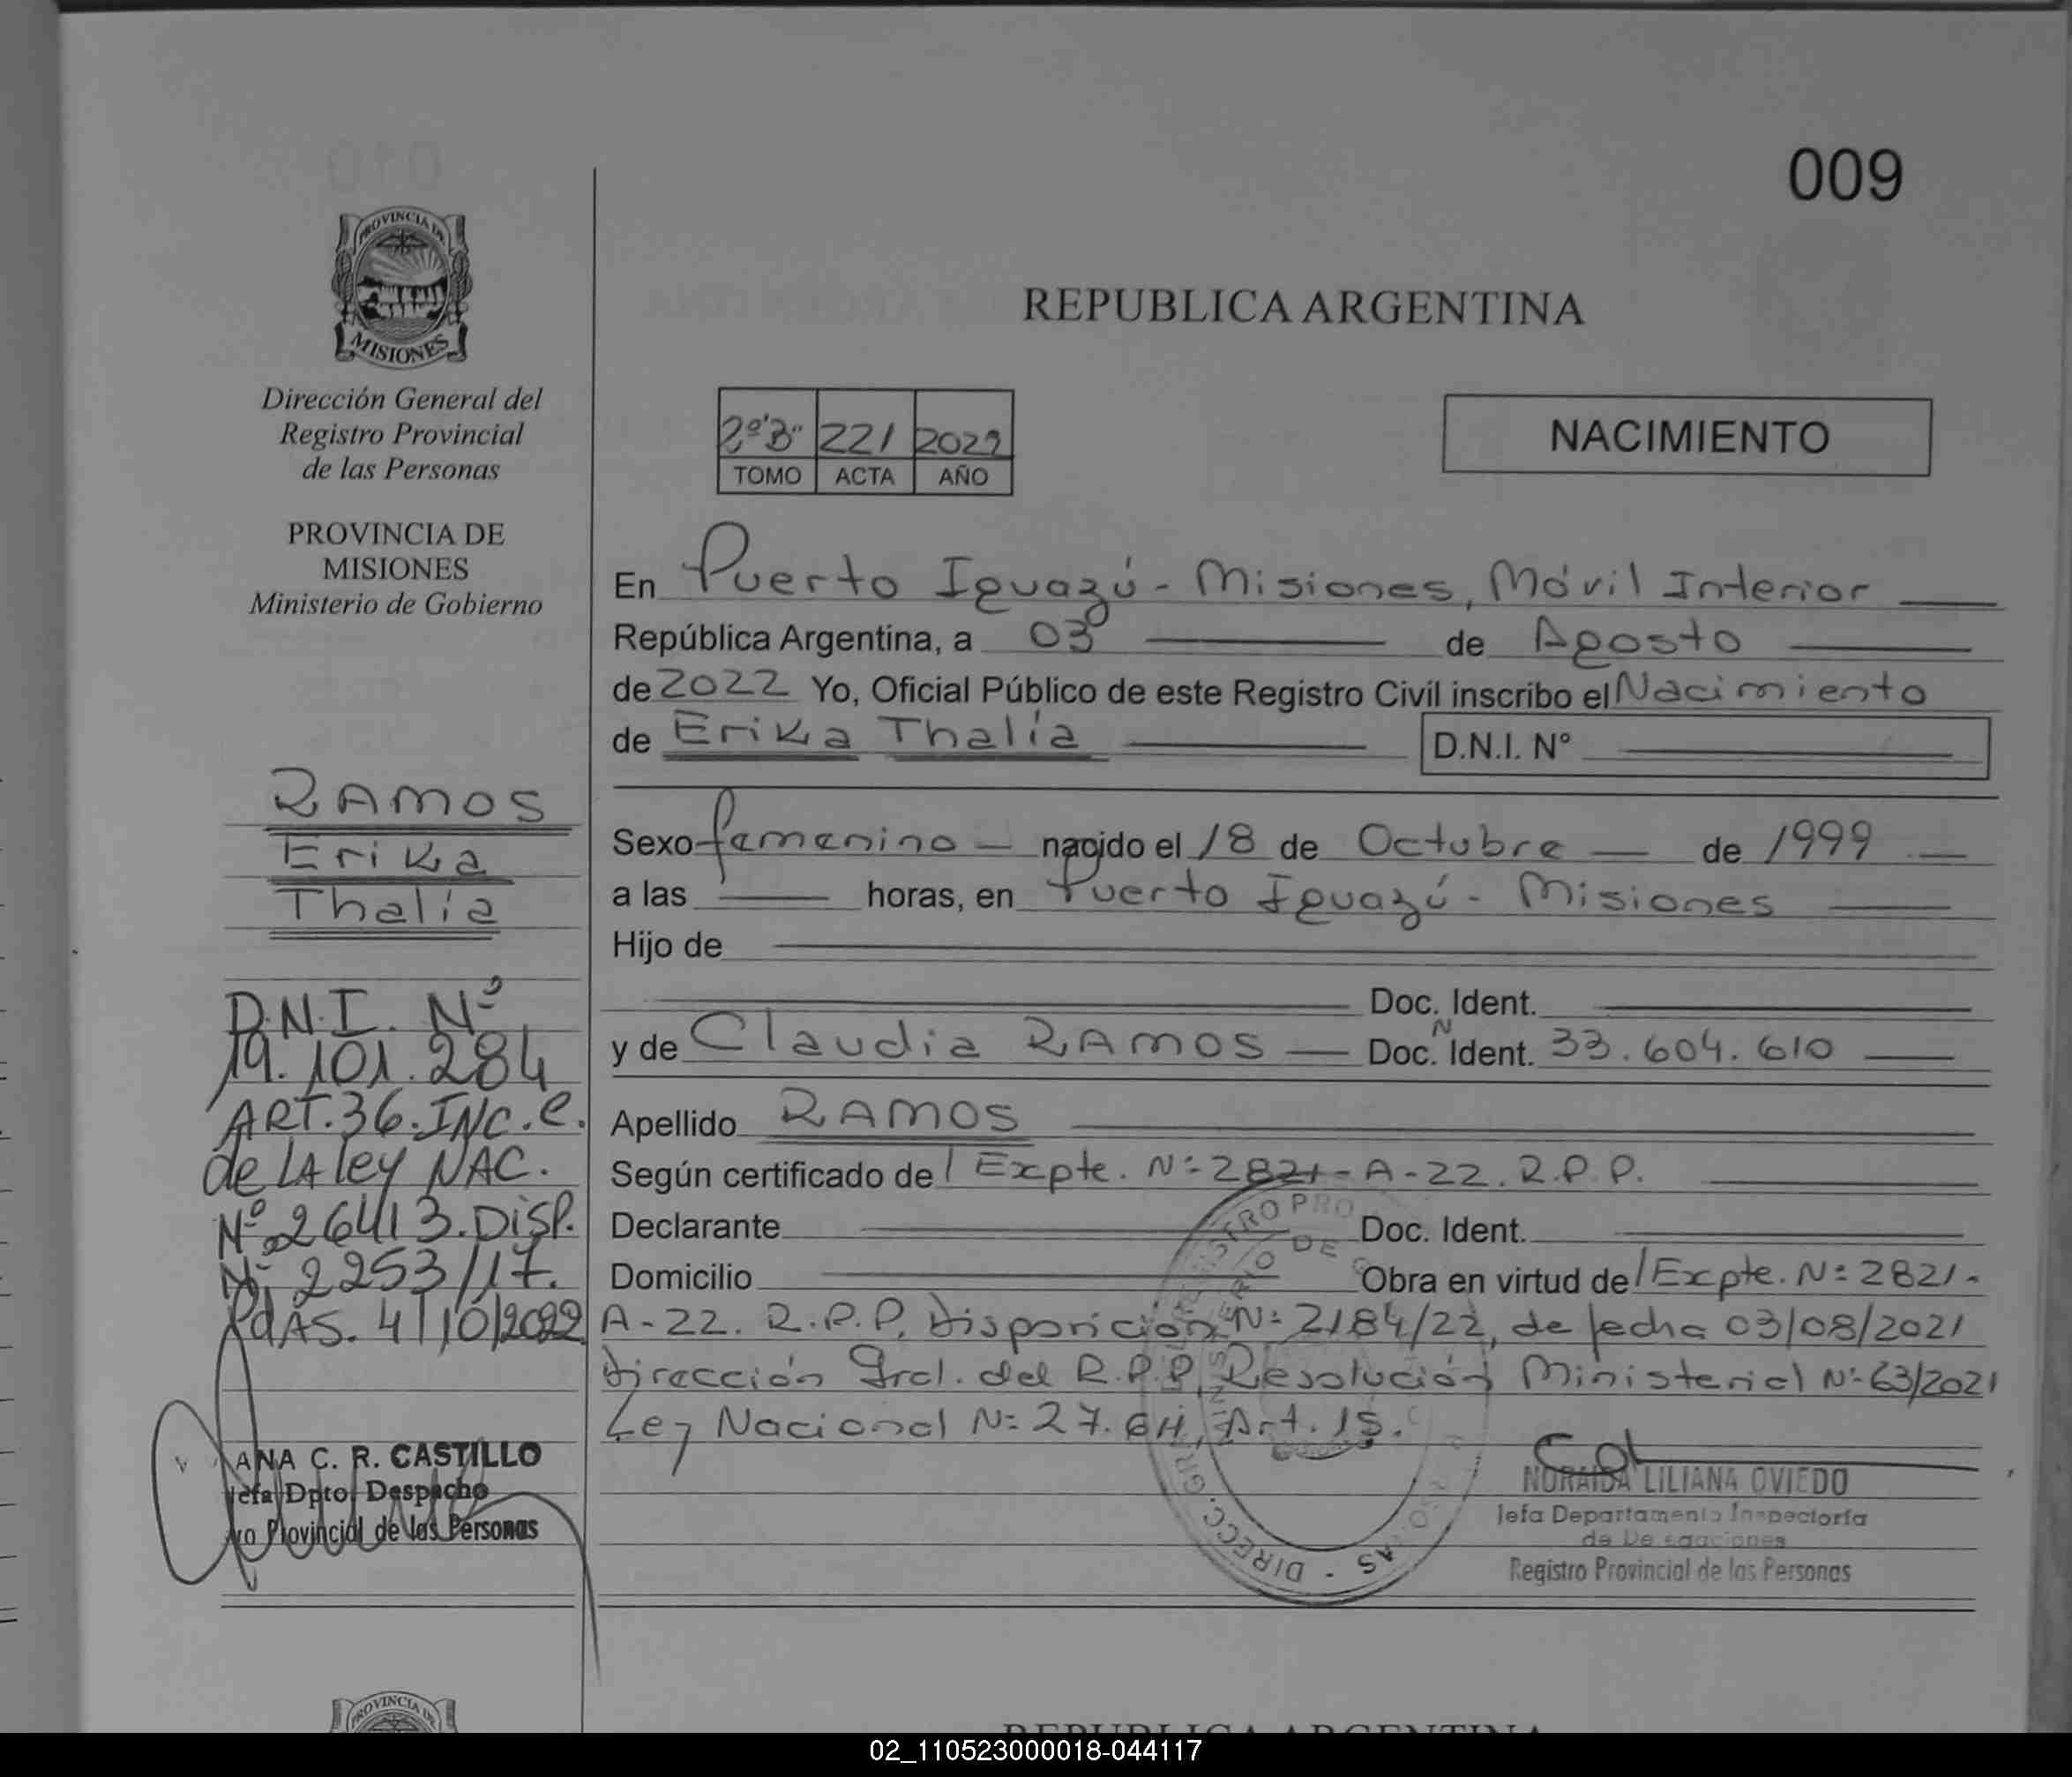 009
PROVINCIA DE
MISIONES
Dirección General del
Registro Provincial
de las Personas
PROVINCIA DE
MISIONES
Ministerio de Gobierno
RAMOS
Erika
Thalía
D.N.I. Nº
19.101.284
ART.36.INC.e.
de LA ley NAC.
Nº 26413.DISP.
Nº 2253/17.
PdAS. 4/10/2022
ANA C. R. CASTILLO
Jefa Dpto. Despacho
Provincial de las Personas
REPUBLICA ARGENTINA
2º"B" 221 2022
TOMO ACTA AÑO
NACIMIENTO
En Puerto Iguazú - Misiones, Móvil Interior
República Argentina, a 03 de Agosto
de 2022 Yo, Oficial Público de este Registro Civil inscribo el Nacimiento
de Erika Thalía D.N.I. Nº
Sexo femenino nacido el 18 de Octubre de 1999
a las horas, en Puerto Iguazú - Misiones
Hijo de
Doc. Ident.
y de Claudia RAMOS Doc. N Ident. 33.604.610
Apellido RAMOS
Según certificado de / Expte. Nº 2821-A-22. R.P.P.
Declarante Doc. Ident.
Domicilio Obra en virtud de / Expte. Nº 2821-
A-22. R.P.P. Disposición Nº 2184/22, de fecha 03/08/2021
Dirección Gral. del R.P.P. Resolución Ministerial Nº 63/2021
Ley Nacional Nº 27.611, Art. 15.
NORAIDA LILIANA OVIEDO
Jefa Departamento Inspectoría
de Delegaciones
Registro Provincial de las Personas
PROVINCIA
REPUBLICA ARGENTINA
02_110523000018-044117